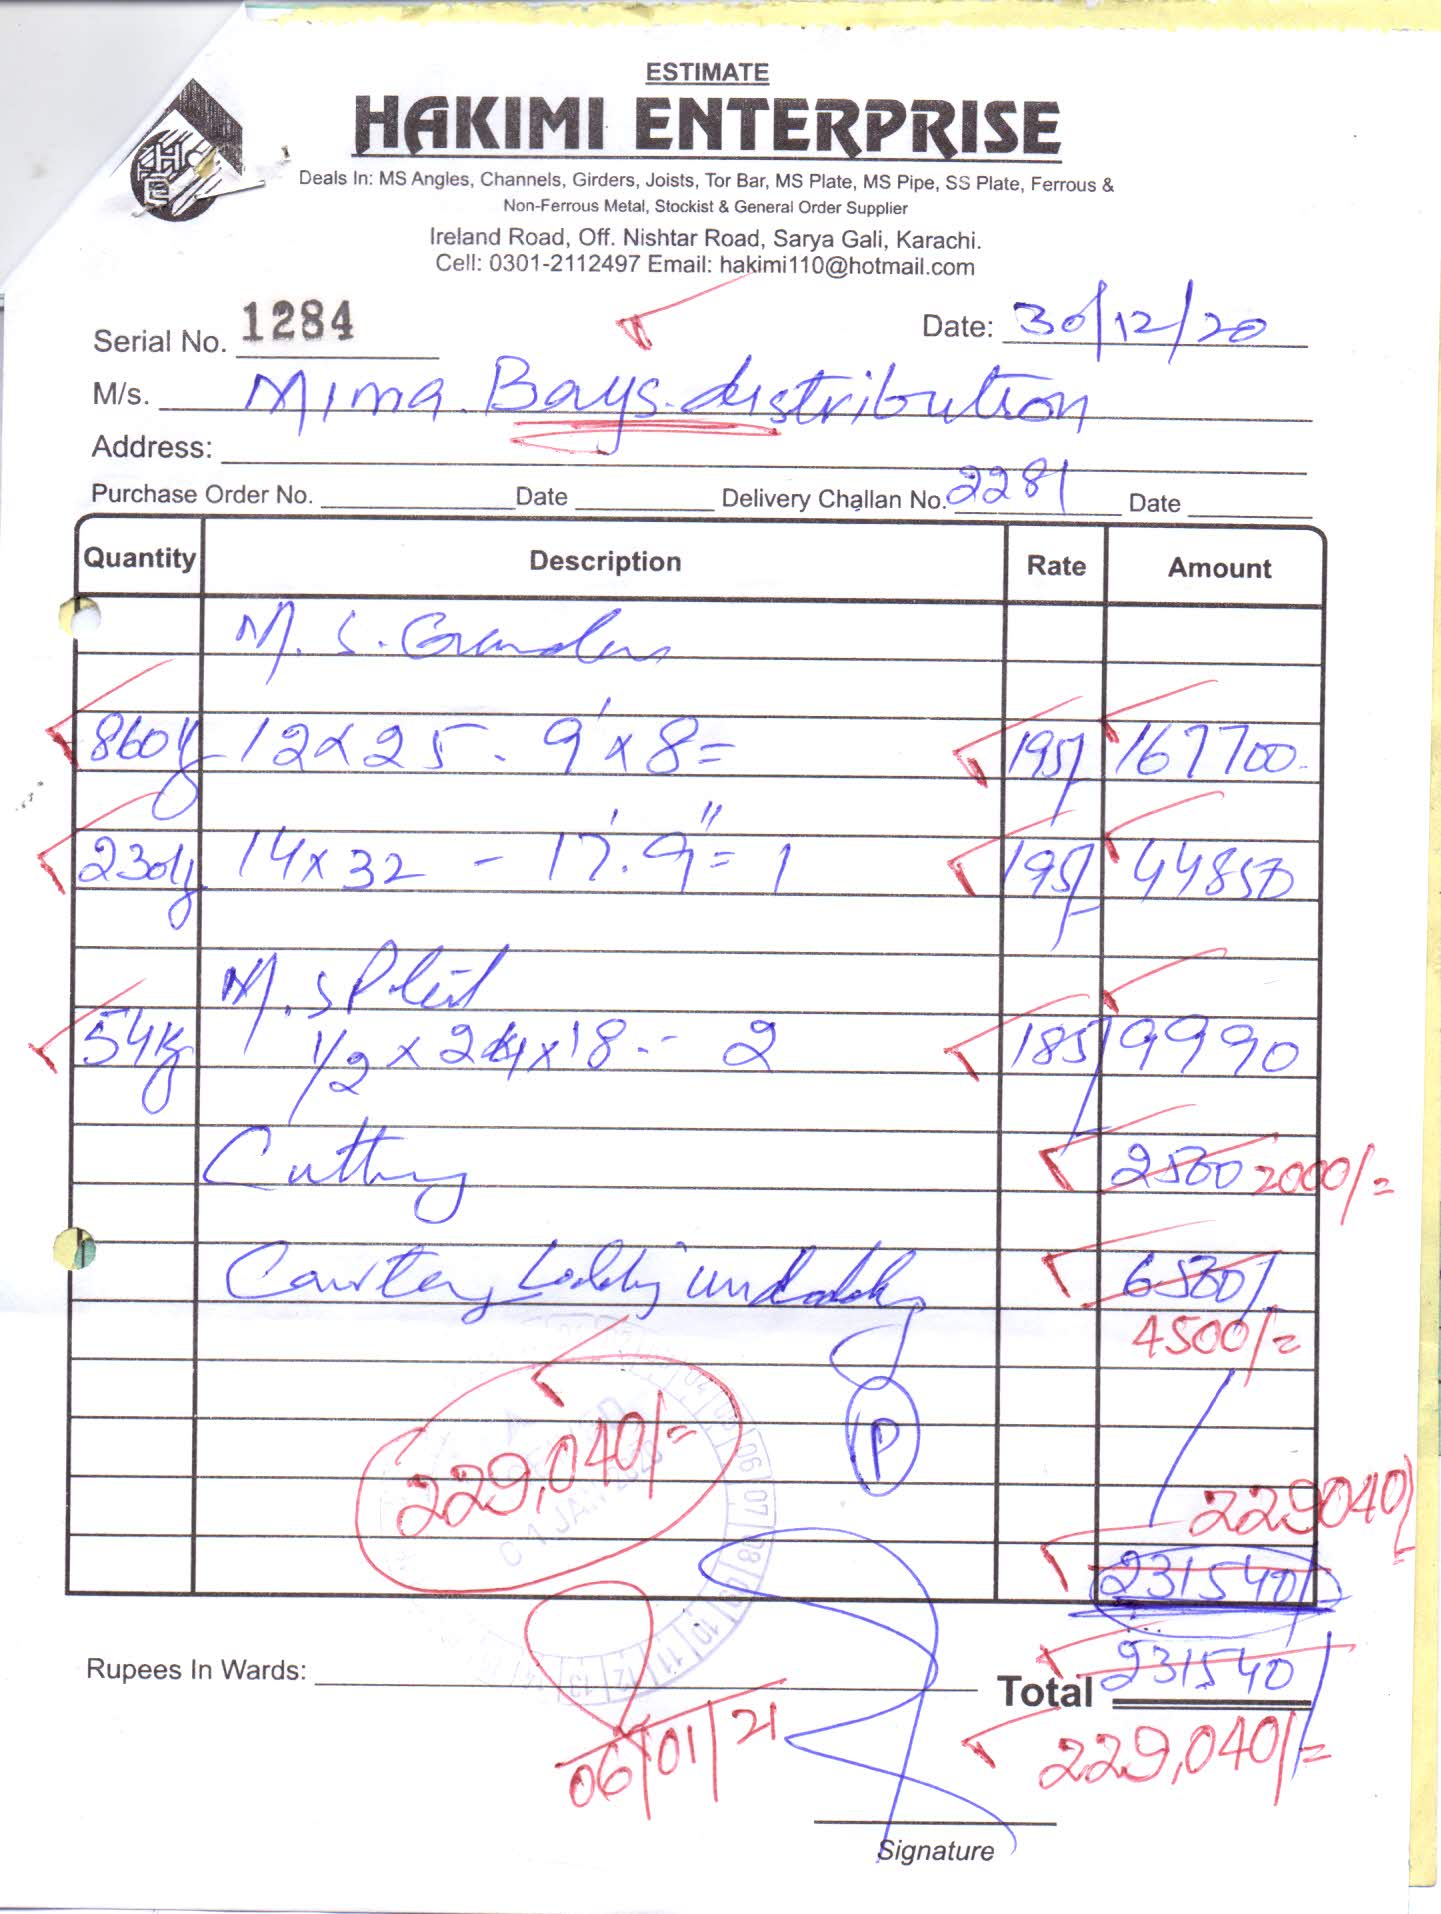 ESTIMATE
HAKIMI ENTERPRISE
Deals In: MS Angles, Channels, Girders, Joists, Tor Bar, MS Plate, MS Pipe, SS Plate, Ferrous &
Non-Ferrous Metal, Stockist & General Order Supplier
Ireland Road, Off. Nishtar Road, Sarya Gali, Karachi.
Cell: 0301-2112497 Email: hakimi110@hotmail.com
Serial No. 1284 Date: 30/12/20
M/s. Mima Bays distribution
Address:
Purchase Order No. Date Delivery Challan No. 2281 Date
Quantity Description Rate Amount
M. S.
860 12x25 - 9'x8= 195/ 167700
230 14x32 - 17'.9"= 1 195/ 44850
M. S
54 1/2 x 24x18 - 2 185/ 9990
Cutting 2500 2000/=
6500/
4500/=
P
229,040/=
01 JAN
229040/
231540/
Rupees In Wards: Total 231540/
06/01/21 229,040/=
Signature